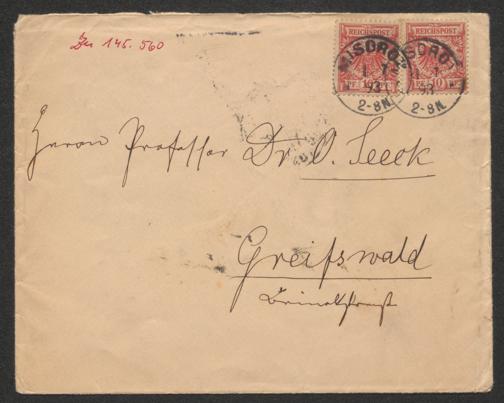 Inv 145.560
REICHSPOST REICHSPOST
MISDROY MISDROY
1 1 1 1
93 93
2-8N. 2-8N.
PF. 10 PF. 10
Herrn Professor Dr. O. Seeck
Greifswald